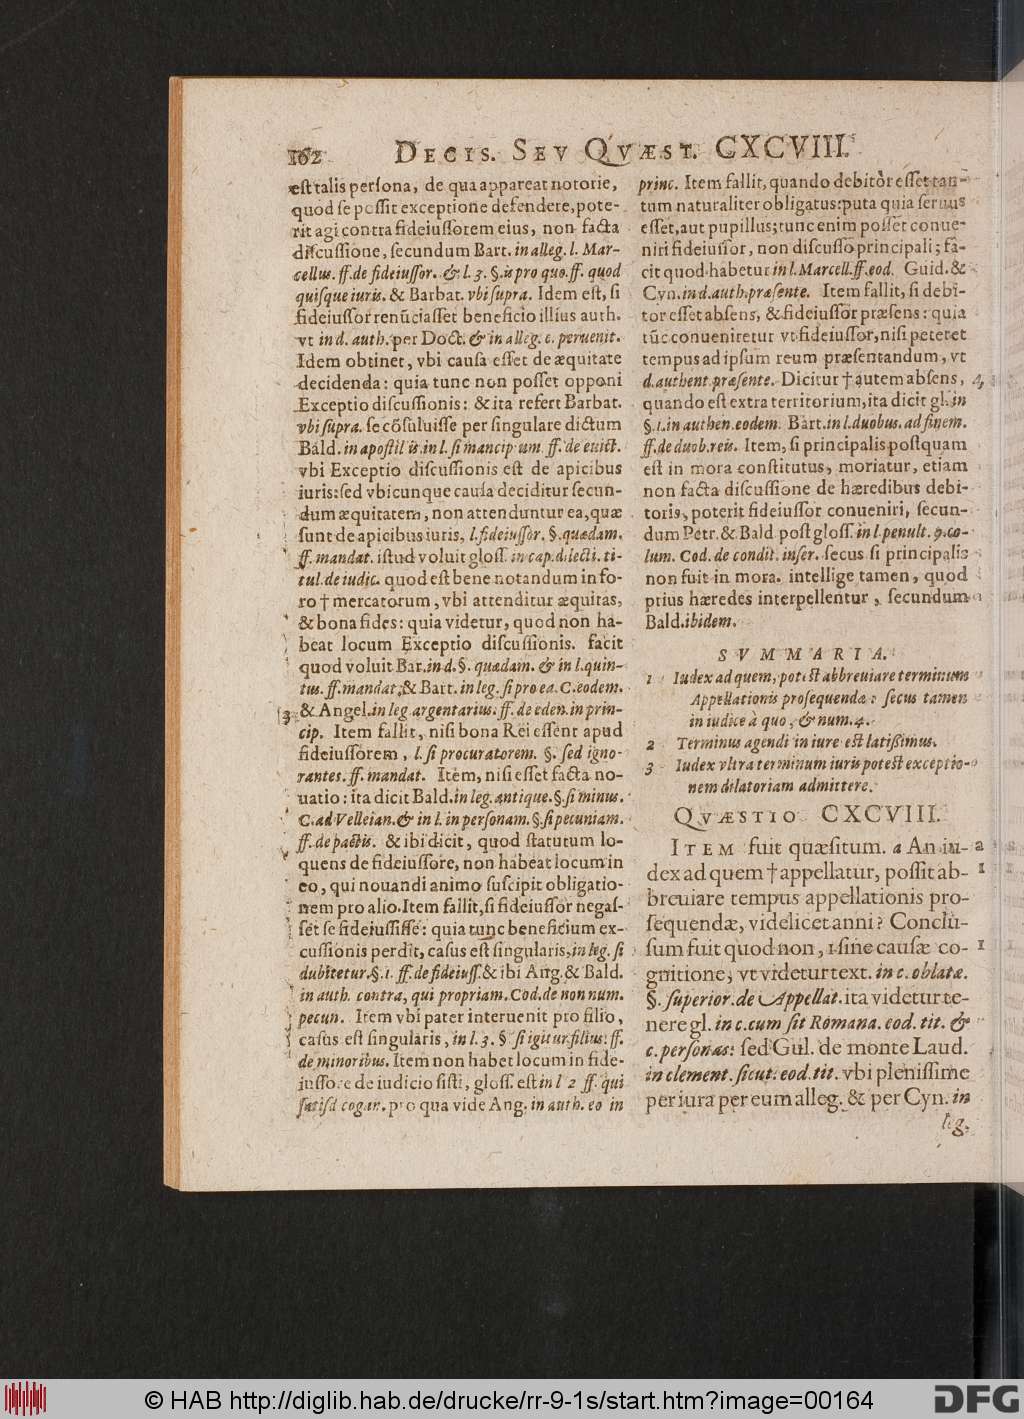 162 DECIS. SEV QVÆST. CXCVIII.
est talis persona, de qua appareat notorie,
quod se possit exceptione defendere, pote-
rit agi contra fideiussorem eius, non facta
discussione, secundum Bart. in alleg. l. Mar-
cellus. ff. de fideiussor. & l. 3. §. is pro quo. ff. quod
quisque iuris. & Barbat. vbi supra. Idem est, si
fideiussor renũciasset beneficio illius auth.
vt in d. auth. per Doct. & in alleg. c. peruenit.
Idem obtinet, vbi causa esset de æquitate
decidenda: quia tunc non posset opponi
Exceptio discussionis: & ita refert Barbat.
vbi supra. se cõsuluisse per singulare dictum
Bald. in apostil is. in l. si mancipium. ff. de euict.
vbi Exceptio discussionis est de apicibus
iuris: sed vbicunque causa deciditur secun-
dum æquitatem, non attenduntur ea, quæ
sunt de apicibus iuris, l. fideiussor. §. quædam.
ff. mandat. istud voluit gloss. in cap. dilecti. ti-
tul. de iudic. quod est bene notandum in fo-
ro † mercatorum, vbi attenditur æquitas,
& bona fides: quia videtur, quod non ha-
beat locum Exceptio discussionis. facit
quod voluit Bar. in d. §. quædam. & in l. quin-
tus. ff. mandat. & Bart. in leg. si pro ea. C. eodem.
3 & Angel. in leg. argentarius. ff. de eden. in prin-
cip. Item fallit, nisi bona Rei essent apud
fideiussorem, l. si procuratorem. §. sed igno-
rantes. ff. mandat. Item, nisi esset facta no-
uatio: ita dicit Bald. in leg. antique. §. si minus.
C. ad Velleian. & in l. in personam. §. si pecuniam.
ff. de pactis. & ibi dicit, quod statutum lo-
quens de fideiussore, non habeat locum in
eo, qui nouandi animo suscipit obligatio-
nem pro alio. Item fallit, si fideiussor negas-
set se fideiussisse: quia tunc beneficium ex-
cussionis perdit, casus est singularis, in leg. si
dubitetur. §. 1. ff. de fideiuss. & ibi Ang. & Bald.
in auth. contra, qui propriam. Cod. de non num.
pecun. Item vbi pater interuenit pro filio,
casus est singularis, in l. 3. § si igitur filius: ff.
de minoribus. Item non habet locum in fide-
iussore de iudicio sisti, gloss. est in l 2 ff. qui
satisd cogan. pro qua vide Ang. in auth. eo in
princ. Item fallit, quando debitor esset tan-
tum naturaliter obligatus: puta quia seruus
esset, aut pupillus; tunc enim posset conue-
niri fideiussor, non discusso principali; fa-
cit quod habetur in l. Marcell. ff. eod. Guid. &
Cyn. in d. auth. præsente. Item fallit, si debi-
tor esset absens, & fideiussor præsens: quia
tũc conueniretur vt fideiussor, nisi peteret
tempus ad ipsum reum præsentandum, vt
d. authent. præsente. Dicitur † autem absens, 4
quando est extra territorium, ita dicit gl. in
§. 1. in authen. eodem. Bart. in l. duobus. ad finem.
ff. de duob. reis. Item, si principalis postquam
est in mora constitutus, moriatur, etiam
non facta discussione de hæredibus debi-
toris, poterit fideiussor conueniri, secun-
dum Petr. & Bald post gloss. in l. penult. 9. co-
lum. Cod. de condit. inser. secus si principalis
non fuit in mora. intellige tamen, quod
prius hæredes interpellentur, secundum
Bald. ibidem.
SVMMARIA.
1 Iudex ad quem, potest abbreuiare terminum
Appellationis prosequendæ: secus tamen
in iudice à quo, & num. 4.
2 Terminus agendi in iure est latißimus.
3 Iudex vltra terminum iuris potest exceptio-
nem dilatoriam admittere.
QVÆSTIO CXCVIII.
ITEM fuit quæsitum. a An iu- a
dex ad quem † appellatur, possit ab- 1
breuiare tempus appellationis pro-
sequendæ, videlicet anni? Conclu-
sum fuit quod non, 1 sine causæ co- 1
gnitione, vt videtur text. in c. oblatæ.
§. superior. de Appellat. ita videtur te-
nere gl. in c. cum sit Romana. eod. tit. &
c. personas: sed Gul. de monte Laud.
in clement. sicut. eod. tit. vbi plenissime
per iura per eum alleg. & per Cyn. in
leg.
© HAB http://diglib.hab.de/drucke/rr-9-1s/start.htm?image=00164
DFG